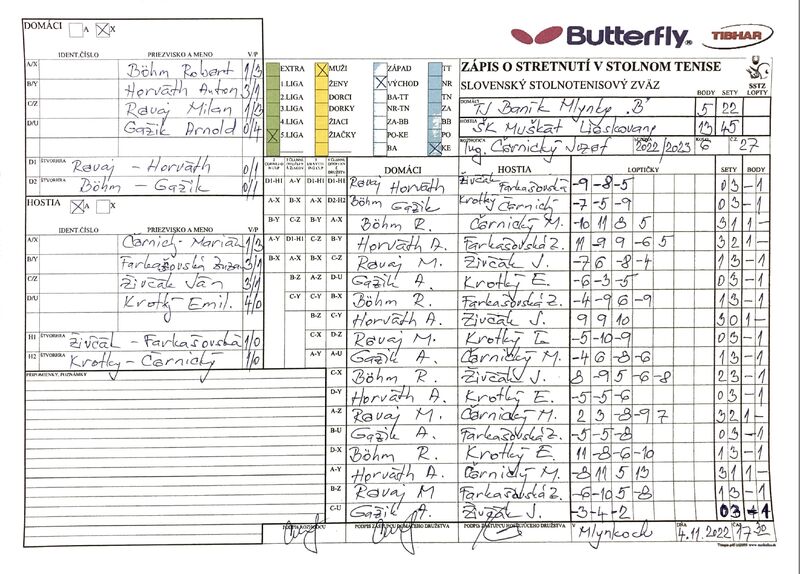 DOMÁCI A X
IDENT.ČÍSLO PRIEZVISKO A MENO V/P
A/X Böhm Robert 1/3
B/Y Horváth Anton 3/1
C/Z Ravaj Milan 1/3
D/U Gažik Arnold 0/4
D1 ŠTVORHRA Ravaj - Horváth 0/1
D2 ŠTVORHRA Böhm - Gažik 0/1
HOSTIA A X
IDENT.ČÍSLO PRIEZVISKO A MENO V/P
A/X Černický Marián 1/3
B/Y Farkašovská Zuzana 3/1
C/Z Živčák Ján 3/1
D/U Krotký Emil 4/0
H1 ŠTVORHRA Živčák - Farkašovská 1/0
H2 ŠTVORHRA Krotký - Černický 1/0
PRIPOMIENKY, POZNÁMKY
Butterfly TIBHAR
EXTRA MUŽI ZÁPAD TT
1.LIGA ŽENY VÝCHOD NR
2.LIGA DORCI BA-TT TN
3.LIGA DORKY NR-TN ZA
4.LIGA ŽIACI ZA-BB BB
5.LIGA ŽIAČKY PO-KE PO
BA KE
ZÁPIS O STRETNUTÍ V STOLNOM TENISE
SLOVENSKÝ STOLNOTENISOVÝ ZVÄZ
BODY SETY SSTZ LOPTY
DOMÁCI TJ Baník Mlynky "B" 5 22
HOSTIA ŠK Muškát Lieskovany 13 45
ROZHODCA Ing. Černický Jozef 2022/2023 6 27
DOMÁCI HOSTIA LOPTIČKY SETY BODY
D1-H1 A-Y D1-H1 D1-H1 Ravaj Horváth Živčák Farkašovská -9 -8 -5 03 -1
A-X B-X A-X D2-H2 Böhm Gažik Krotký Černický -7 -5 -9 03 -1
B-Y C-Z B-Y A-X Böhm R. Černický M. -10 11 8 5 31 1-
A-Y D1-H1 C-Z B-Y Horváth A. Farkašovská Z. 11 -9 9 -6 5 32 1-
B-X A-X B-X C-Z Ravaj M. Živčák J. -7 6 -8 -4 13 -1
B-Z A-Z D-U Gažik A. Krotký E. -6 -3 -5 03 -1
C-Y C-Y B-X Böhm R. Farkašovská Z. -4 -9 6 -9 13 -1
B-Z C-Y Horváth A. Živčák J. 9 9 10 30 1-
C-X D-Z Ravaj M. Krotký E. -5 -10 -9 03 -1
A-Y A-U Gažik A. Černický M. -4 6 -8 -6 13 -1
C-X Böhm R. Živčák J. 8 -9 5 -6 -8 23 -1
D-Y Horváth A. Krotký E. -5 -5 -6 03 -1
A-Z Ravaj M. Černický M. 2 3 -8 -9 7 32 1-
B-U Gažik A. Farkašovská Z. -5 -5 -8 03 -1
D-X Böhm R. Krotký E. 11 -8 -6 -10 13 -1
A-Y Horváth A. Černický M. -8 11 5 13 31 1-
B-Z Ravaj M Farkašovská Z. -6 -10 5 -8 13 -1
C-U Gažik A. Živčák J. -3 -4 -2 03 -1
PODPIS ROZHODCU PODPIS ZÁSTUPCU DOMÁCEHO DRUŽSTVA PODPIS ZÁSTUPCU HOSŤUJÚCEHO DRUŽSTVA V Mlynkoch DŇA 4.11.2022 ČAS 17:30